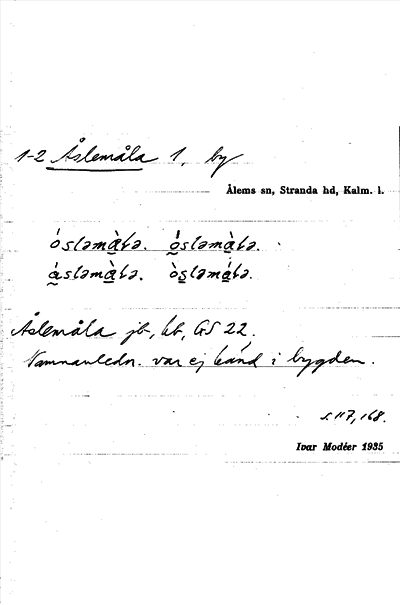 1-2 Åslemåla 1, by
Ålems sn, Stranda hd, Kalm. l.
óslemàla. óslemàla.
áslemàla. òslemála.
Åslemåla jb, kb, GS 22.
Namnanledn. var ej känd i bygden.
s. 117, 168.
Ivar Modéer 1935